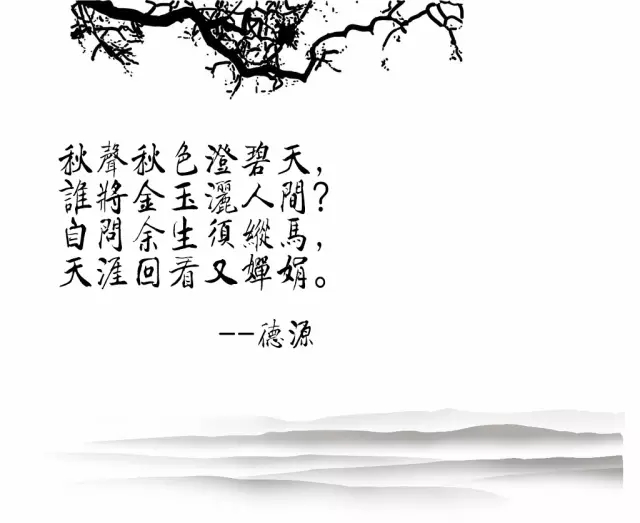 秋聲秋色澄碧天，
誰將金玉灑人間？
自問余生須縱馬，
天涯回看又嬋娟。
--德源